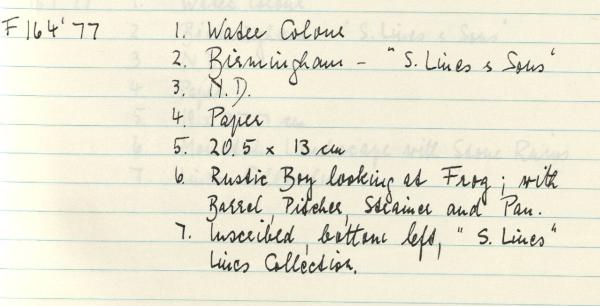 F 164'77 1. Water Colour
2. Birmingham - "S. Lines & Sons"
3. N.D.
4. Paper
5. 20.5 x 13 cm
6. Rustic Boy looking at Frog; with
Barrel, Pitcher, Strainer and Pan.
7. Inscribed, bottom left, "S. Lines"
Lines Collection.